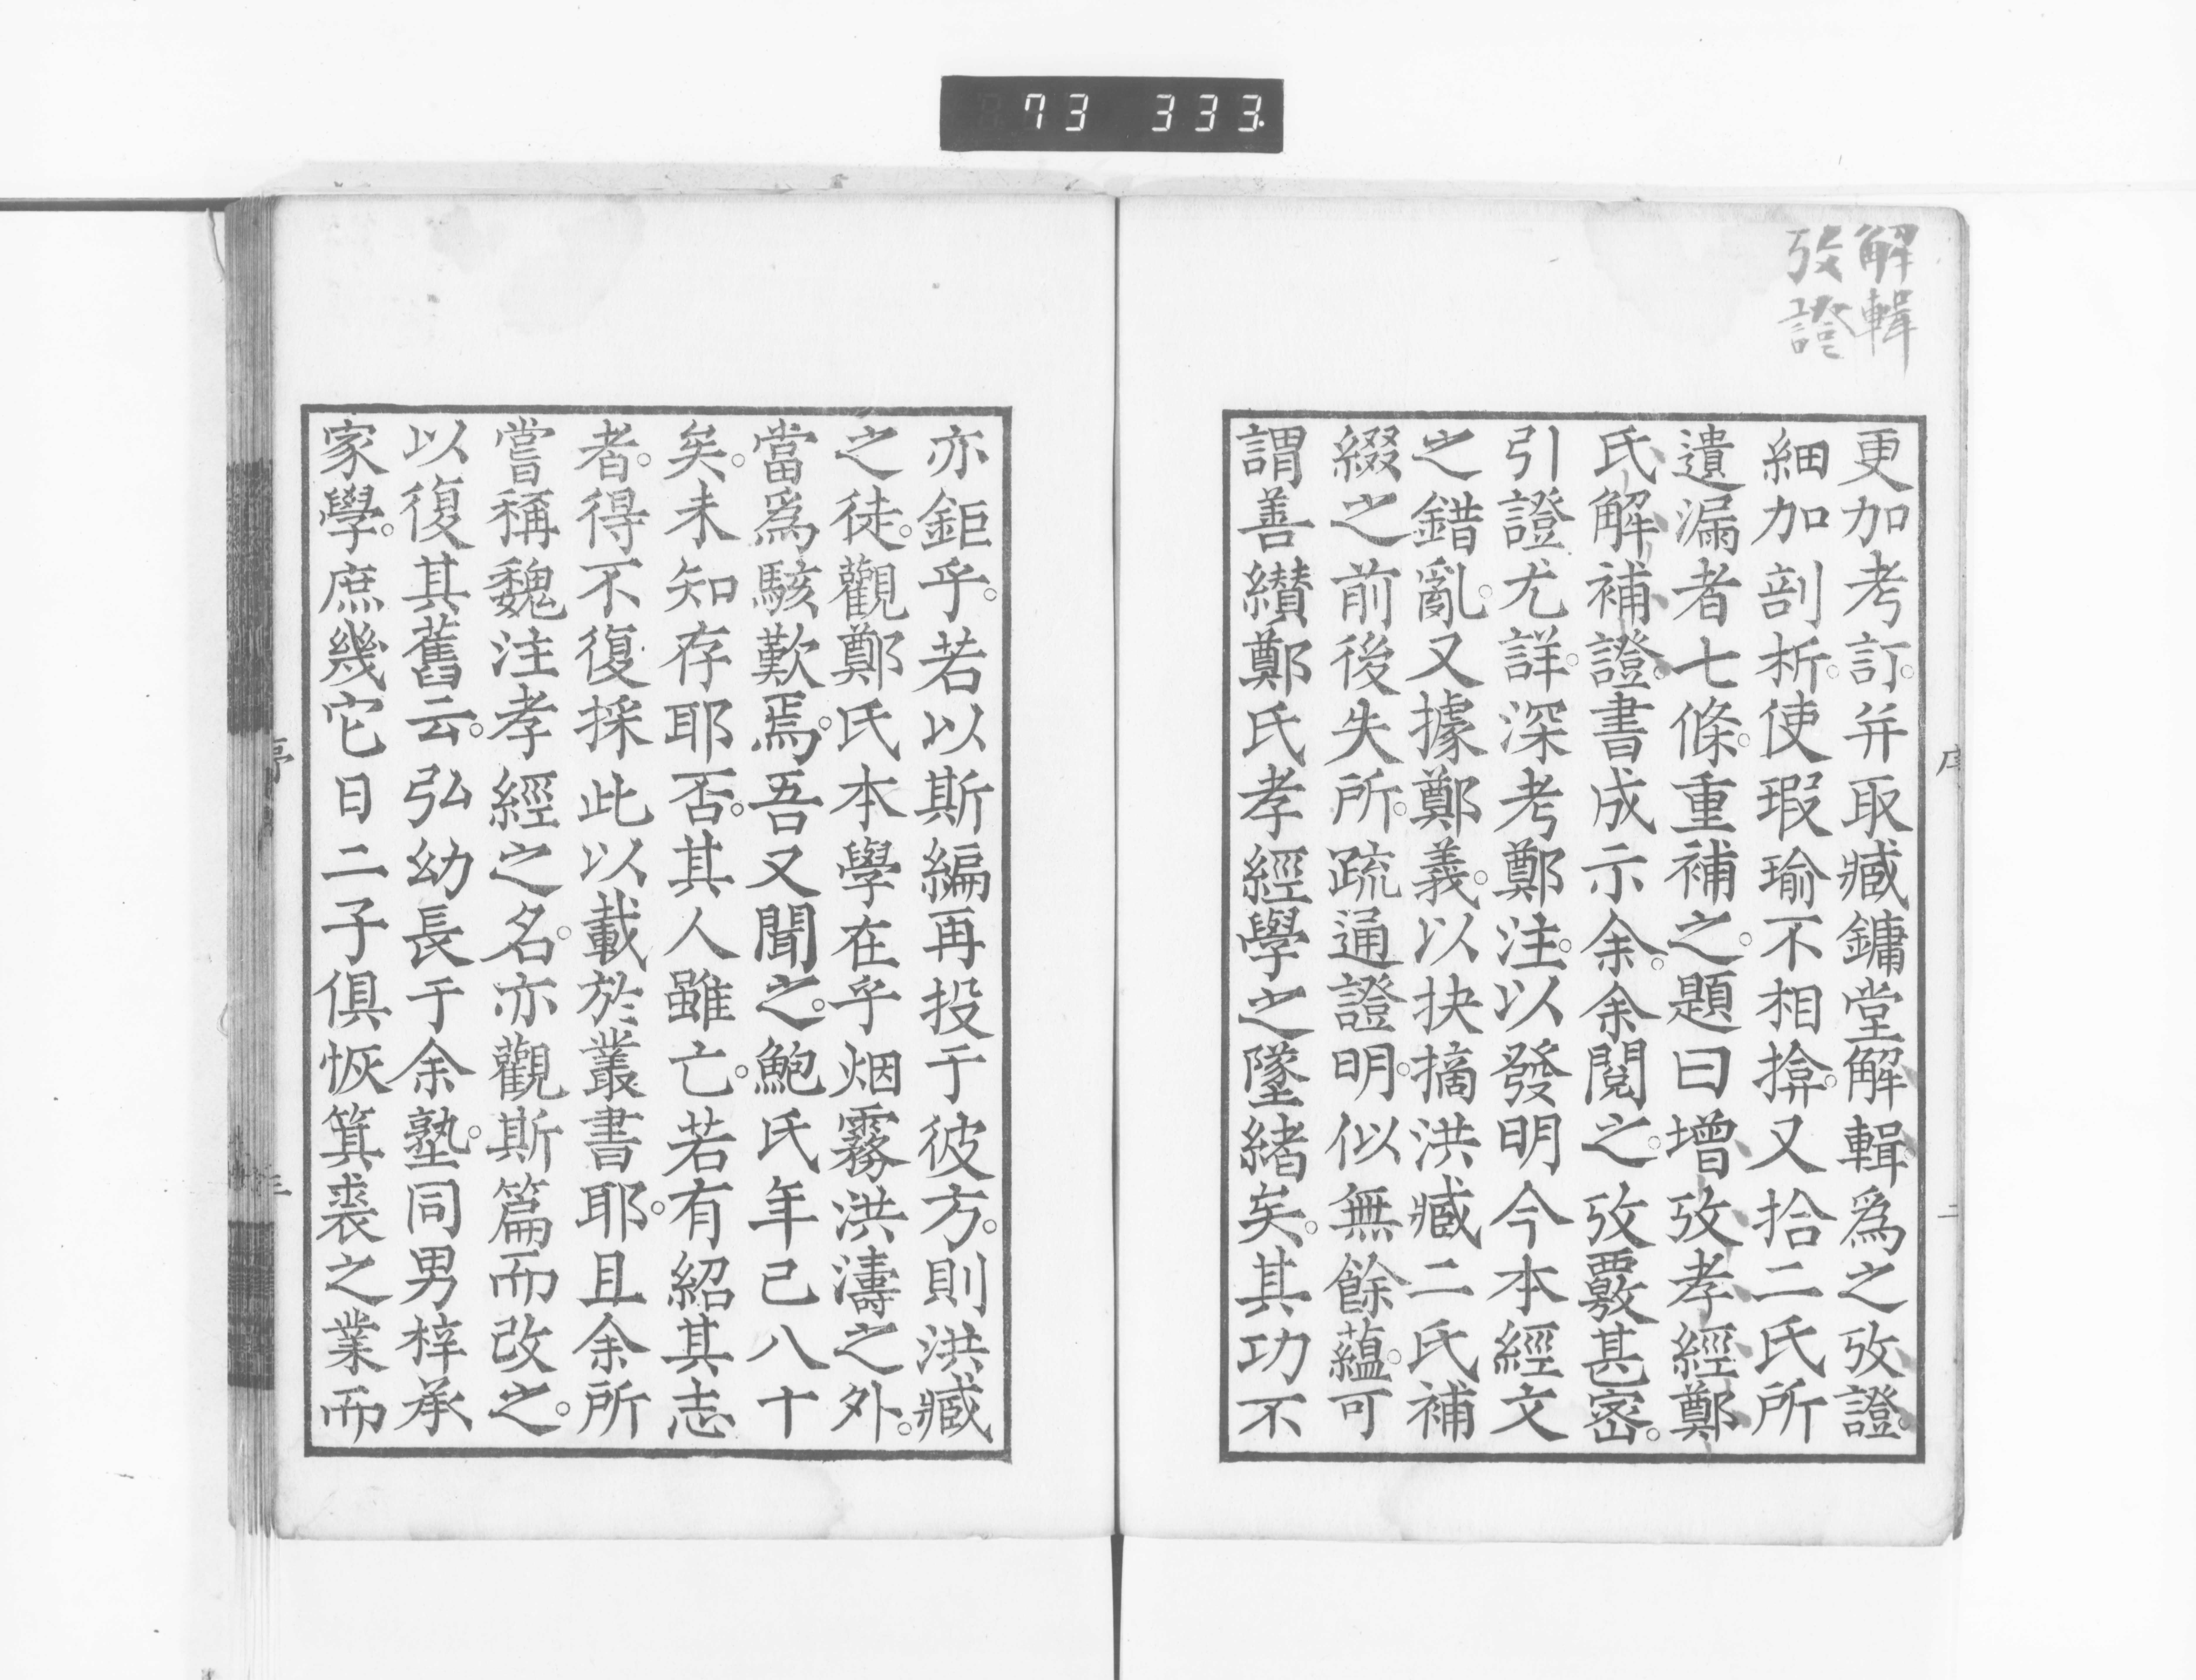 73 333.
解輯
攷證
更加考訂。并取臧鏞堂解輯。爲之攷證。
細加剖析。使瑕瑜不相揜。又拾二氏所
遺漏者七條。重補之。題曰增攷孝經鄭
氏解補證。書成示余。余閱之。攷覈甚密。
引證尤詳。深考鄭注。以發明今本經文
之錯亂。又據鄭義。以抉摘洪臧二氏補
綴之前後失所。疏通證明。似無餘蘊。可
謂善纉鄭氏孝經學之墜緒矣。其功不
序
二
亦鉅乎。若以斯編再投于彼方。則洪臧
之徒。觀鄭氏本學在乎烟霧洪濤之外。
當爲駭歎焉。吾又聞之。鮑氏年已八十
矣。未知存耶否。其人雖亡。若有紹其志
者。得不復採此以載於叢書耶。且余所
嘗稱魏注孝經之名。亦觀斯篇而改之。
以復其舊云。弘幼長于余塾。同男梓承
家學。庶幾它日二子俱恢箕裘之業而
序
三